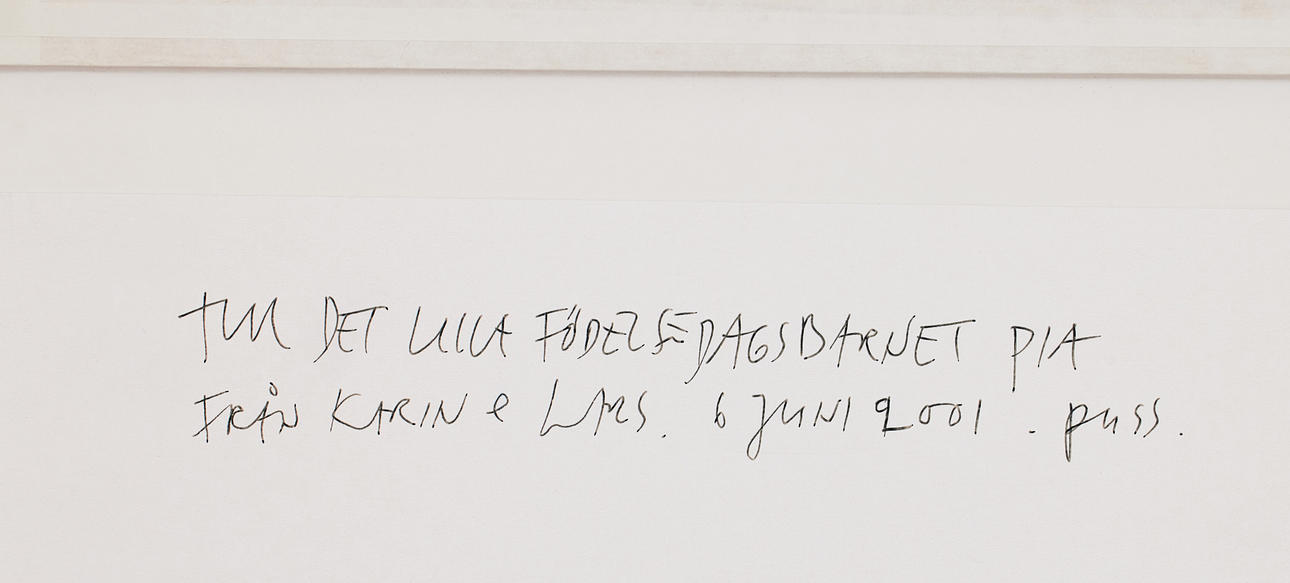 TILL DET LILLA FÖDELSEDAGSBARNET PIA
FRÅN KARIN & LARS. 6 JUNI 2001. PUSS.